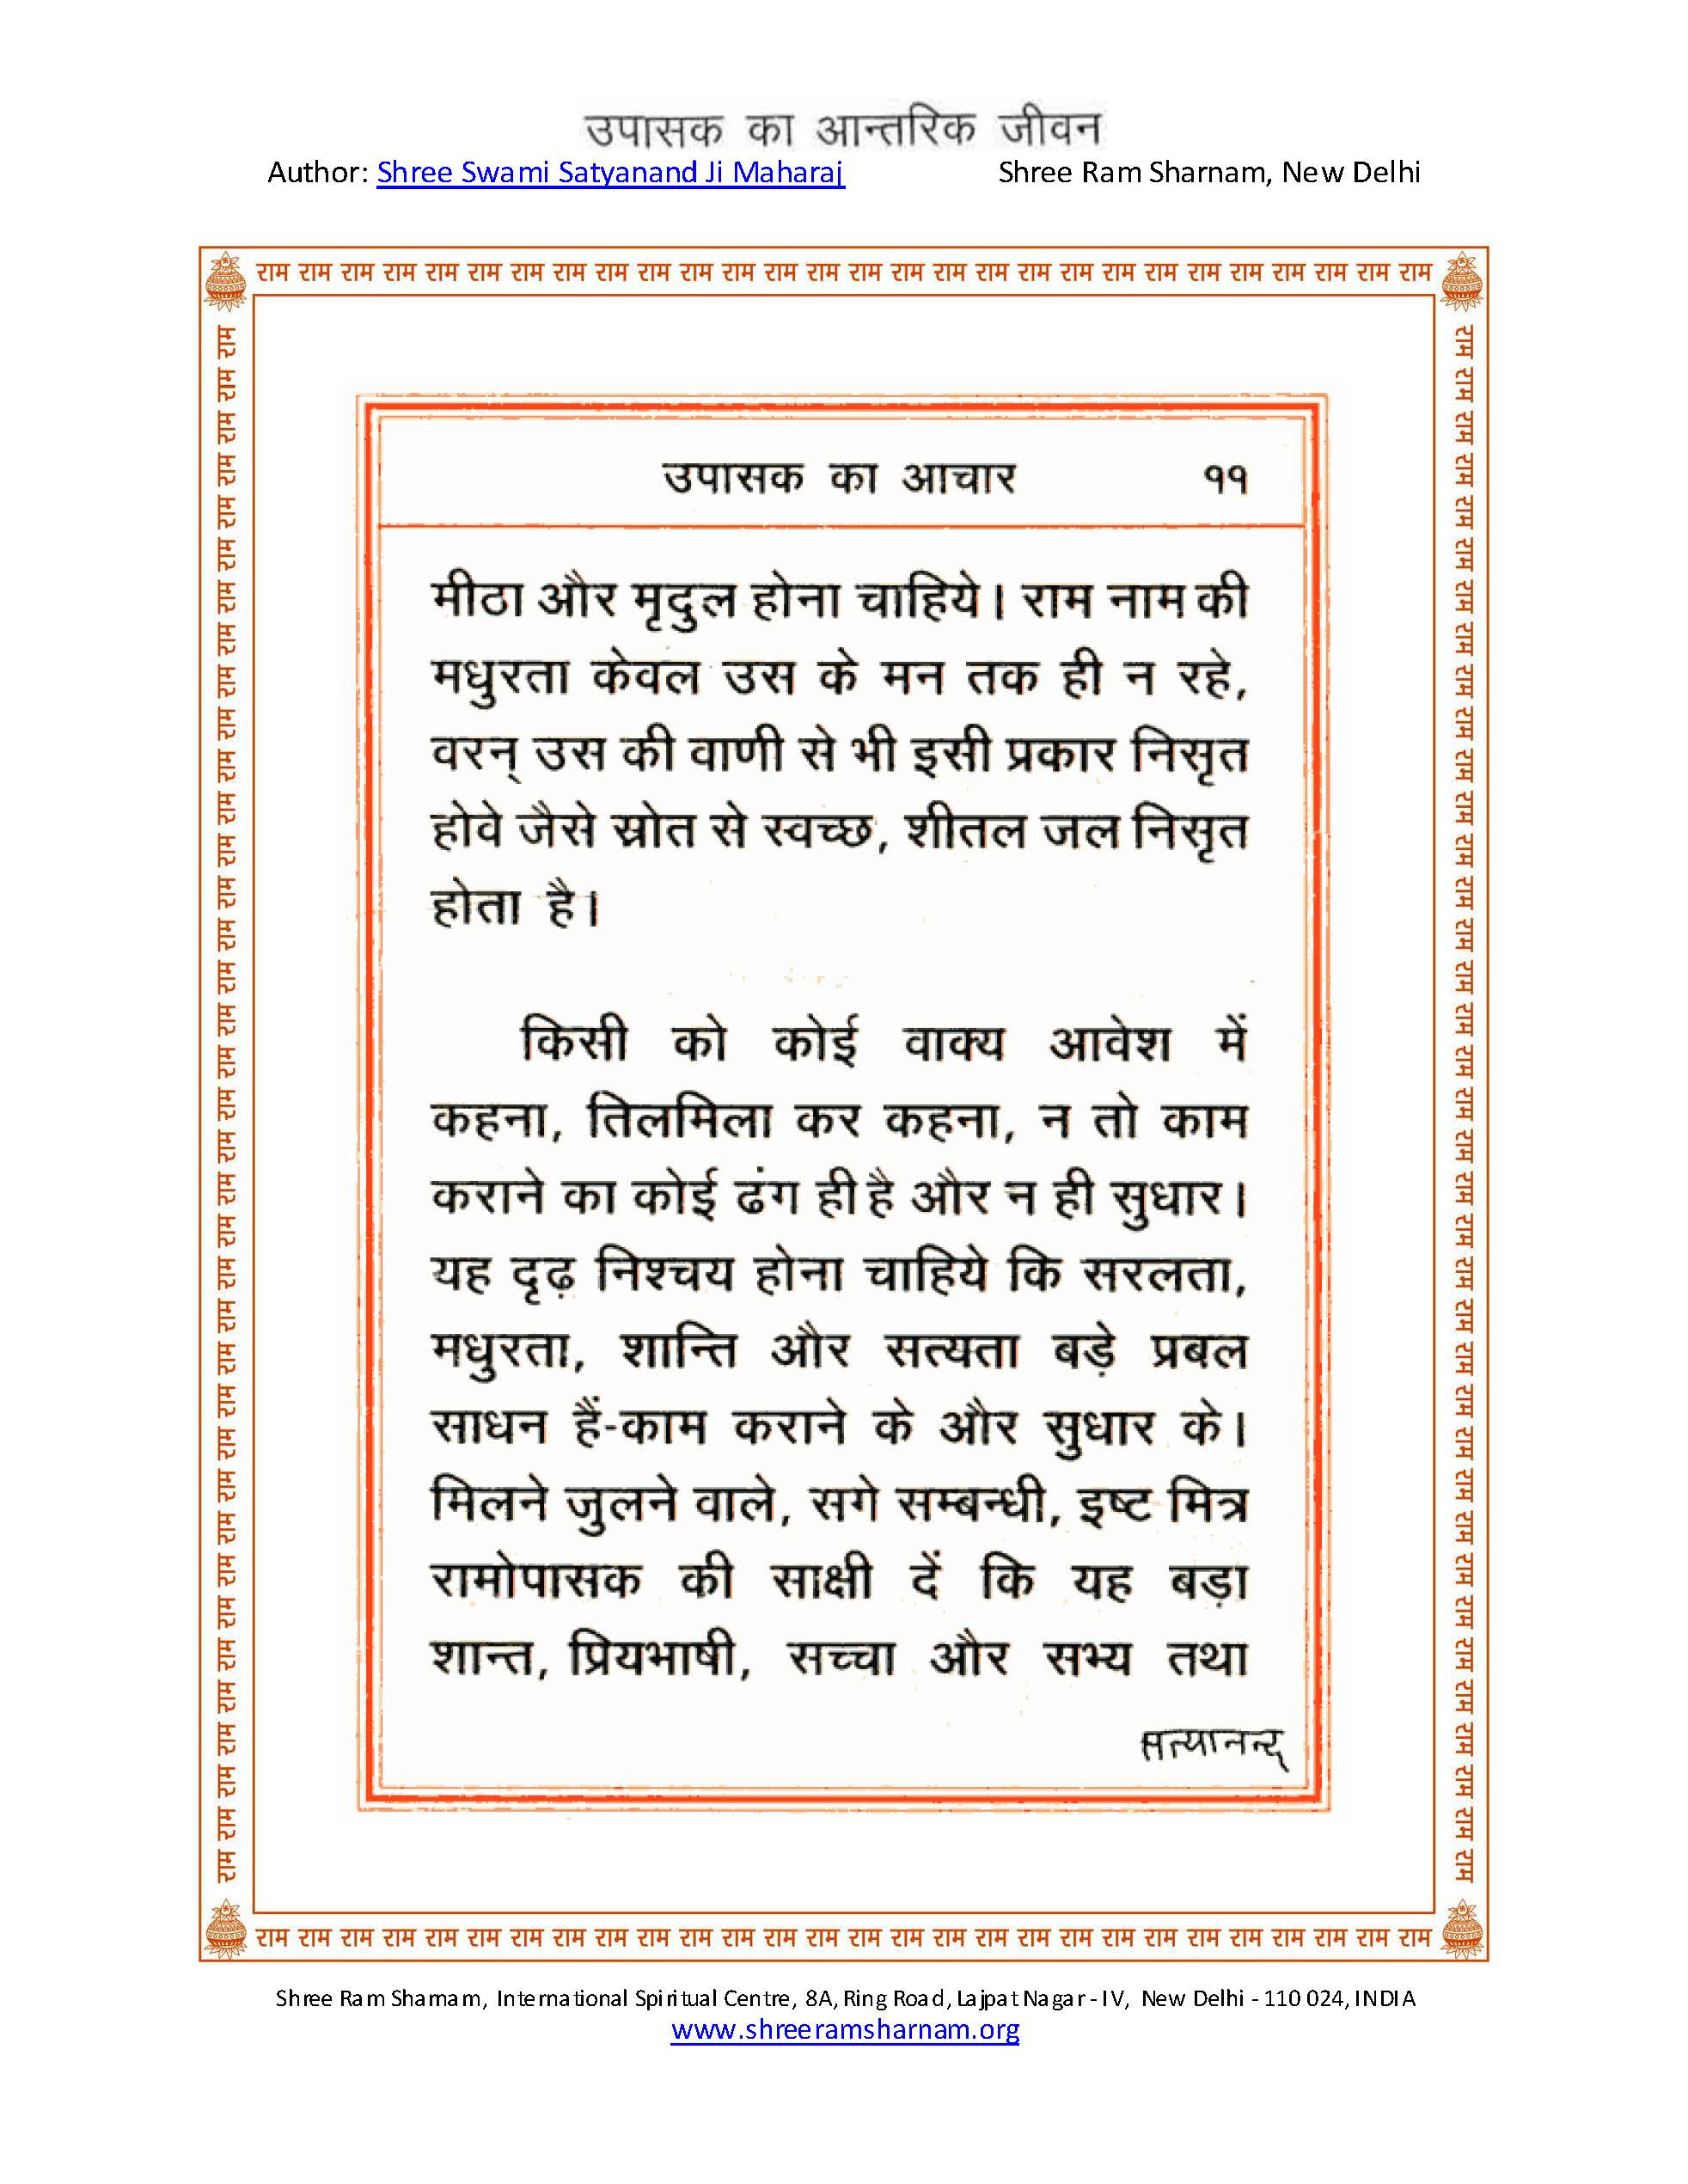 उपासक का आन्तरिक जीवन
Author: Shree Swami Satyanand Ji Maharaj Shree Ram Sharnam, New Delhi
राम राम राम राम राम राम राम राम राम राम राम राम राम राम राम राम राम राम राम राम राम राम राम राम राम राम राम राम
उपासक का आचार ११
मीठा और मृदुल होना चाहिये। राम नाम की
मधुरता केवल उस के मन तक ही न रहे,
वरन् उस की वाणी से भी इसी प्रकार निसृत
होवे जैसे स्रोत से स्वच्छ, शीतल जल निसृत
होता है।
किसी को कोई वाक्य आवेश में
कहना, तिलमिला कर कहना, न तो काम
कराने का कोई ढंग ही है और न ही सुधार।
यह दृढ़ निश्चय होना चाहिये कि सरलता,
मधुरता, शान्ति और सत्यता बड़े प्रबल
साधन हैं-काम कराने के और सुधार के।
मिलने जुलने वाले, सगे सम्बन्धी, इष्ट मित्र
रामोपासक की साक्षी दें कि यह बड़ा
शान्त, प्रियभाषी, सच्चा और सभ्य तथा
सत्यानन्द
राम राम राम राम राम राम राम राम राम राम राम राम राम राम राम राम राम राम राम राम राम राम राम राम राम राम राम राम
राम राम राम राम राम राम राम राम राम राम राम राम राम राम राम राम राम राम राम राम राम राम राम राम राम राम राम राम राम राम राम राम राम राम राम राम राम
राम राम राम राम राम राम राम राम राम राम राम राम राम राम राम राम राम राम राम राम राम राम राम राम राम राम राम राम राम राम राम राम राम राम राम राम राम
Shree Ram Sharnam, International Spiritual Centre, 8A, Ring Road, Lajpat Nagar - IV, New Delhi - 110 024, INDIA
www.shreeramsharnam.org